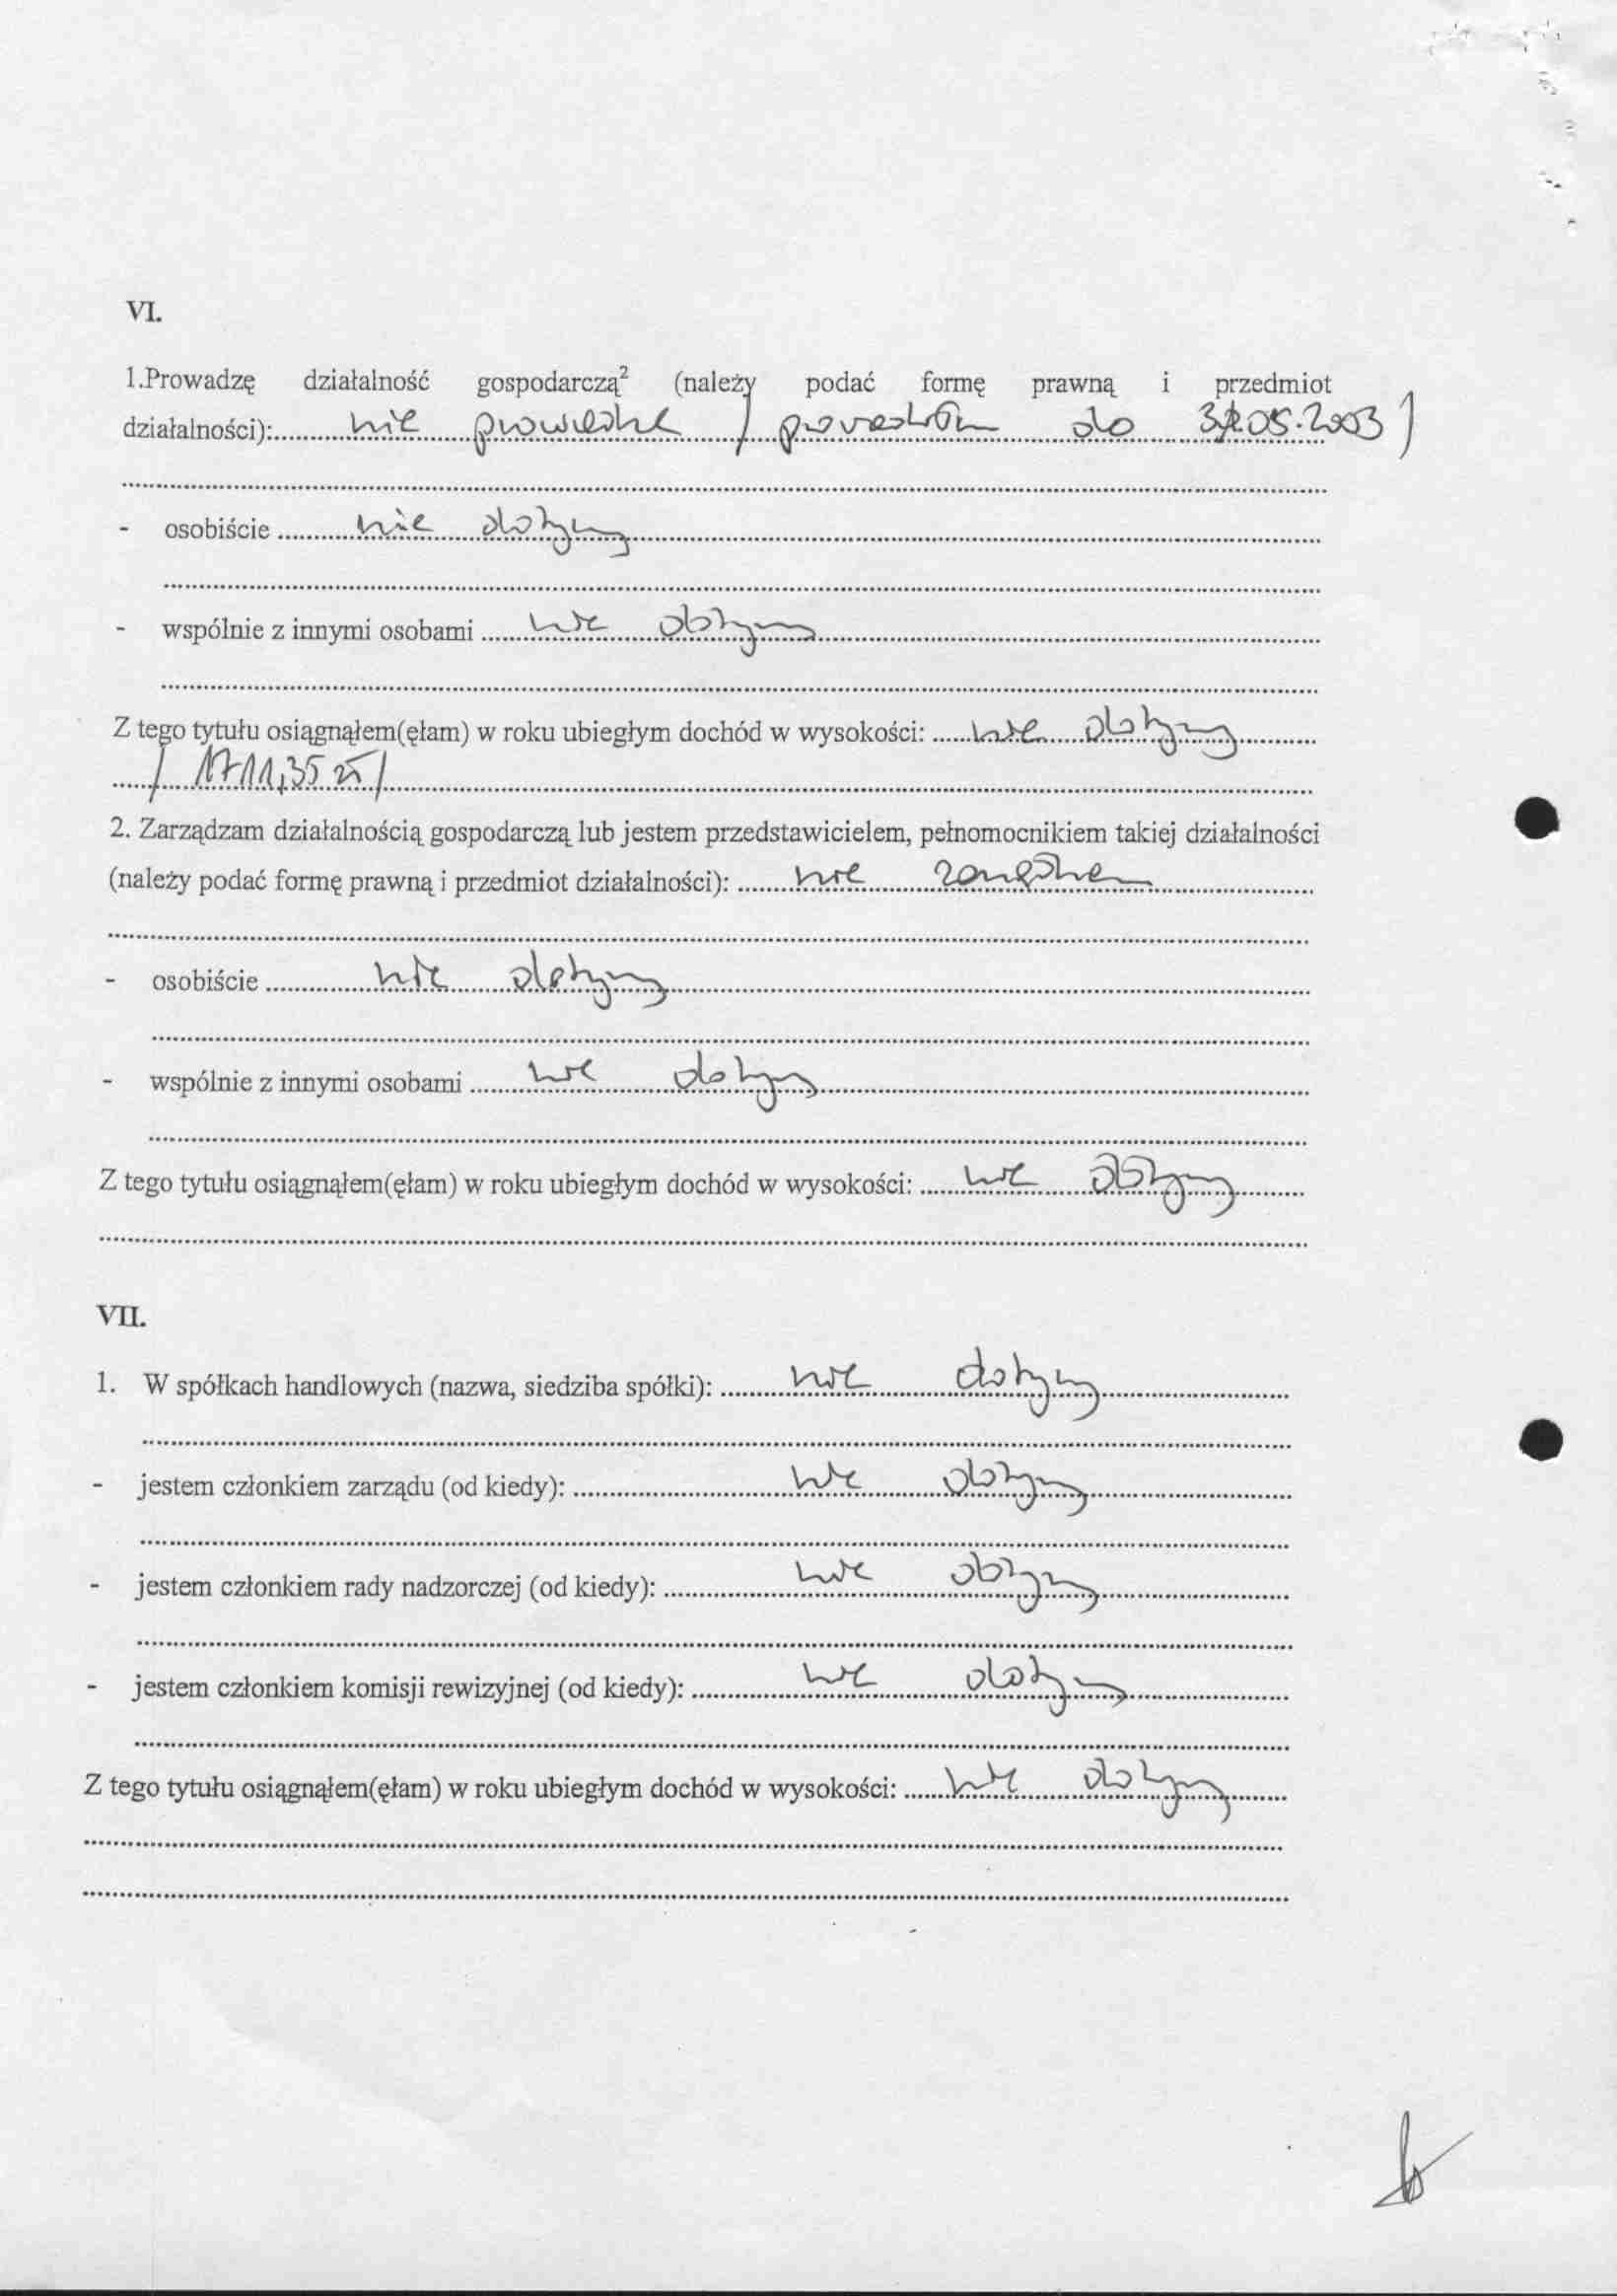 VI.
1.Prowadzę działalność gospodarczą² (należy podać formę prawną i przedmiot
działalności):.......... nie prowadzę / prowadziłam do 31.05.2003 /
- osobiście .......... nie dotyczy
- wspólnie z innymi osobami ...... nie dotyczy
Z tego tytułu osiągnąłem(ęłam) w roku ubiegłym dochód w wysokości: ..... nie dotyczy
/ 1711,35 zł /
2. Zarządzam działalnością gospodarczą lub jestem przedstawicielem, pełnomocnikiem takiej działalności
(należy podać formę prawną i przedmiot działalności): ....... nie zarządzam
- osobiście .......... nie dotyczy
- wspólnie z innymi osobami ....... nie dotyczy
Z tego tytułu osiągnąłem(ęłam) w roku ubiegłym dochód w wysokości: ..... nie dotyczy
VII.
1. W spółkach handlowych (nazwa, siedziba spółki): ........ nie dotyczy
- jestem członkiem zarządu (od kiedy): .......... nie dotyczy
- jestem członkiem rady nadzorczej (od kiedy): .......... nie dotyczy
- jestem członkiem komisji rewizyjnej (od kiedy): .......... nie dotyczy
Z tego tytułu osiągnąłem(ęłam) w roku ubiegłym dochód w wysokości: ..... nie dotyczy